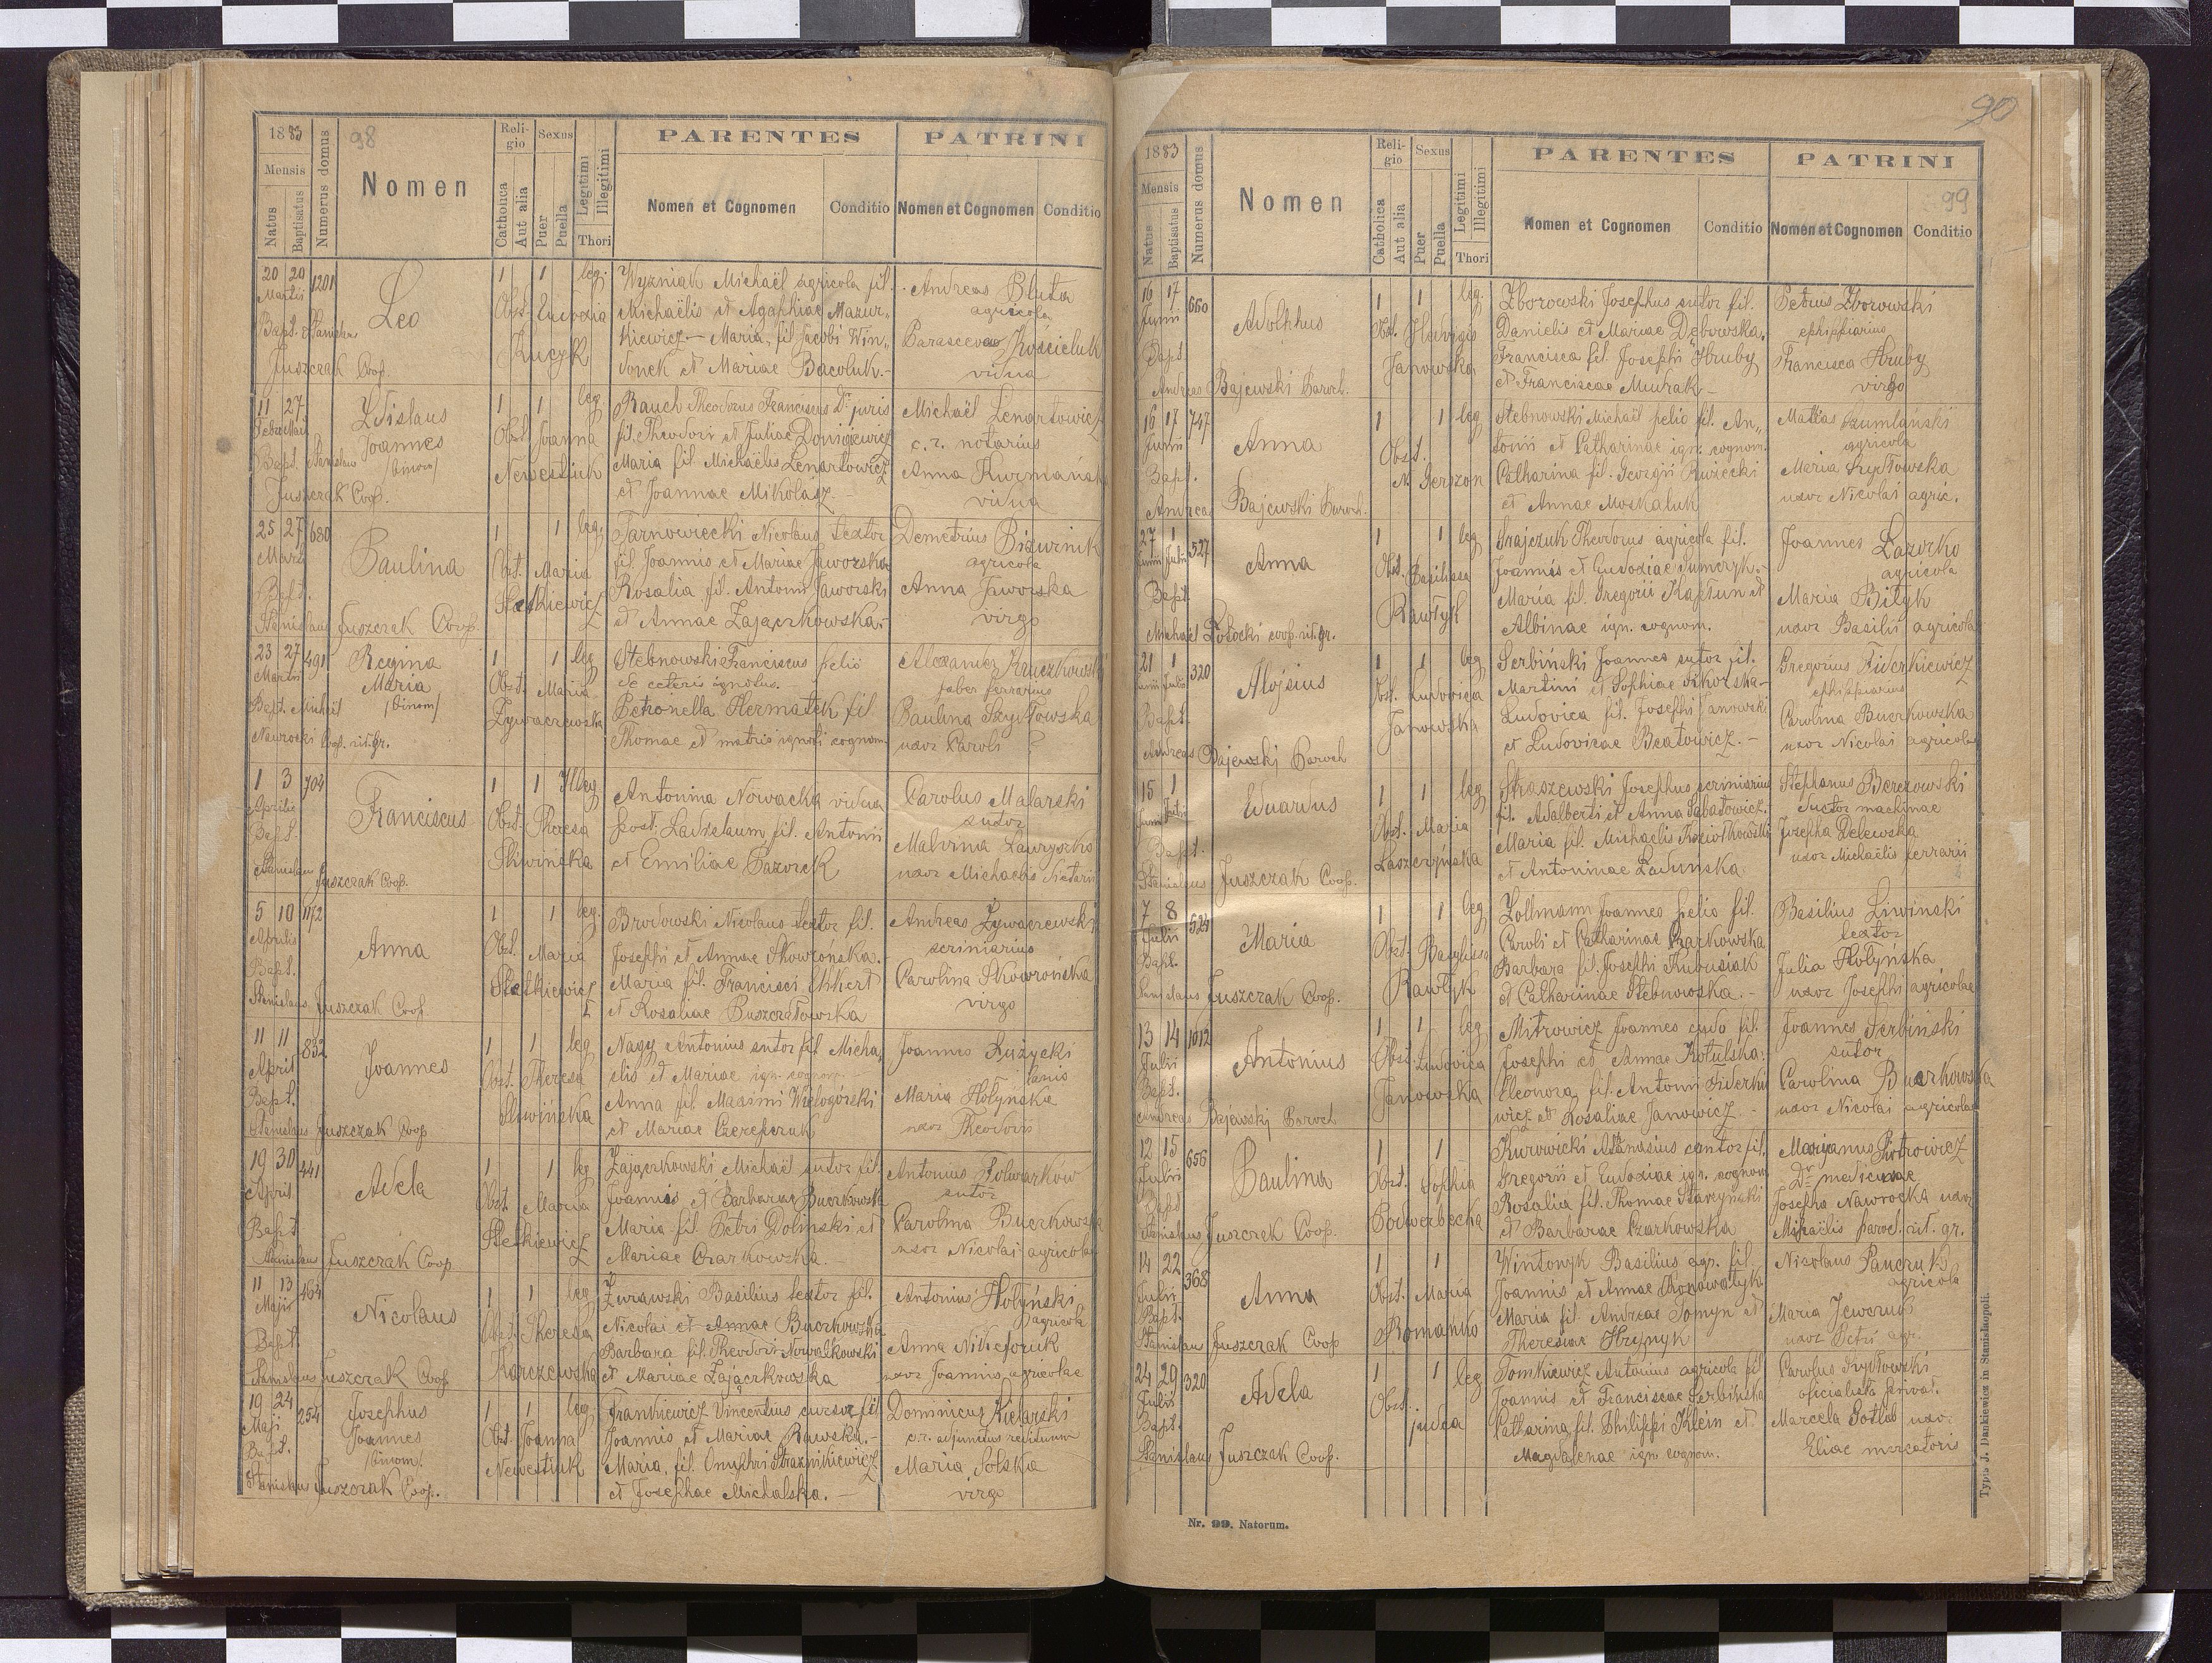 98
1883
Mensis
Natus
Baptisatus
Numerus domus
Nomen
Religio
Catholica
Aut alia
Sexus
Puer
Puella
Legitimi
Illegitimi
Thori
PARENTES
Nomen et Cognomen
Conditio
PATRINI
Nomen et Cognomen
Conditio
20 20 1201
Martii
Leo
1 1 leg.
Bapt. Stanislaus
Juszczak Coop.
Obst. Eudoxia
Kucyk
Wyzniak Michaël agricola fil.
Michaëlis et Agaphiae Mazur„
kiewicz – Maria, fil Jacobi Win„
donek et Mariae Bacoluk. –
Andreas Bluta
agricola
Parascevae Kościeluk
vidua
11 27
Februarii
Zdislaus
Joannes
/binom/
1 1 leg
Bapt. Stanislaus
Juszczak Coop.
Obst. Joanna
Newestiuk
Rauch Theodorus Franciscus Dr juris
fil. Theodori et Juliae Donigiewicz
Maria fil Michaëlis Lenartowicz
et Joannae Mikolasz. –
Michaël Lenartowicz
c. r. notarius
Anna Kurmańska
vidua
25 27 680
Marti
Paulina
1 1 leg.
Bapt.
Stanislaus Juszczak Coop.
Obst. Maria
Stetkiewicz
Tarnowiecki Nicolaus textor
fil. Joannis et Mariae Jaworska
Rosalia fil. Antonii Jaworski
et Annae Zajączkowska. –
Demetrius Bidurnik
agricola
Anna Jaworska
virgo
23 27 491
Martii
Regina
Maria
/binom/
1 1 leg
Bapt. Michaël
Nawrocki coop. rit. gr.
Obst. Maria
Żywaczewska
Stebnowski Franciscus pelio
de ceteris ignotus. –
Petronella Hermatek fil
Thomae et matris ignoti cognom.
Alexander Kruczkowski
faber ferrarius
Paulina Szydłowska
uxor Caroli ?
1 3 704
Aprilis
Franciscus
1 1 Illeg
Bapt.
Stanislaus Juszczak Coop.
Obst. Theresa
Śliwińska
Antonina Nowacka vidua
post. Ladislaum fil. Antonii
et Emiliae Pazorek
Carolus Malarski
sutor
Malvina Lawryszko
uxor Michaelis
5 10 1172
Aprilis
Anna
1 1 leg.
Bapt.
Stanislaus Juszczak Coop.
Obst. Maria
Stetkiewicz
Brodowski Nicolaus textor fil.
Josephi et Annae Skowrońska. –
Maria fil. Francisci Ekkert
et Rosaliae Puszczałowska
Andreas Żywaczewski
scriniarius
Carolina Skowrońska
virgo
11 11 832
April
Joannes
1 1 leg
Bapt.
Stanislaus Juszczak Coop
Obst. Theresa
Śliwińska
Nagy Antonius sutor fil Micha„
elis et Mariae ign. cognom. –
Anna fil. Maximi Wielogórski
et Mariae Czerepczuk
Joannes Rużycki
lanio
Maria Hołyńska
uxor Theodori
19 30 441
April.
Adela
1 1 leg
Bapt
Stanislaus Juszczak Coop
Obst. Maria
Stetkiewicz
Zajączkowski Michaël sutor fil.
Joannis et Barbarae Buczkowska
Maria fil. Petri Doliński et
Mariae Czarkowska. –
Antonius Folwarków
sutor
Carolina Buczkowska
uxor Nicolai agricolae
11 13 464
Maji
Nicolaus
1 1 leg
Bapt.
Stanislaus Juszczak Coop
Obst. Theresa
Karczewska
Żurawski Basilius textor fil.
Nicolai et Annae Buczkowska
Barbara fil. Theodori Nowalkowski
et Mariae Zajączkowska
Antonius Hołyński
agricola
Anna Nikiforuk
uxor Joannis agricolae
19 24 254
Maji
Josephus
Joannes
/binom/
1 1 leg
Bapt.
Stanislaus Juszczak Coop.
Obst. Joanna
Newestiuk
Frankiewicz Vincentius cursor fil
Joannis et Mariae Rawska. –
Maria, fil. Onuphri Strażnikiewicz
et Josephae Michalska. –
Dominicus Kielarski
c. r. adjunctus reddituum
Maria Solska
virgo
90
99
1883
Mensis
Natus
Baptisatus
Numerus domus
Nomen
Religio
Catholica
Aut alia
Sexus
Puer
Puella
Legitimi
Illegitimi
Thori
PARENTES
Nomen et Cognomen
Conditio
PATRINI
Nomen et Cognomen
Conditio
16 17 660
Junii
Adolphus
1 1 leg.
Bapt
Andreas Bajewski Paroch.
Obst. Hedvigis
Janowska
Zborowski Josephus sutor fil.
Danielis et Mariae Dębowska.
Francisca fil. Josephi Hruby
et Franciscae Mudrak –
Petrus Zborowski
ephippiarius
Francisca Hruby
virgo
16 17 747
Junii
Anna
1 1 leg
Bapt.
Andreas Bajewski Paroch.
Obst.
N. Gerszon
Stebnowski Michaël pelio fil. An„
tonii et Catharinae ign. cognom.
Catharina fil. Georgii Rużecki
et Annae Moskaluk
Mattias Szumlański
agricola
Maria Szydłowska
uxor Nicolai agric.
27 1 527
Junii Julii
Anna
1 1 leg
Bapt.
Michaël Potocki coop. rit. gr.
Obst. Basilissa
Rawłyk
Grajczuk Theodorus agricola fil.
Joannis et Eudoxiae Jumczyk. –
Maria fil. Gregorii Kapłun et
Albinae ign. cognom.
Joannes Lazorko
agricola
Maria Biłyk
uxor Basilii agricola
21 1 320
Junii Julii
Alojsius
1 1 leg
Bapt.
Andreas Bajewski Paroch
Obst. Ludovica
Janowska
Serbiński Joannes sutor fil.
Martini et Sophiae Sikorska –
Ludovica fil. Josephi Janowski
et Ludovicae Beatowicz. –
Gregorius Fiderkiewicz
ephippiarius
Carolina Buczkowska
uxor Nicolai agricolae
15 1
Junii Julii
Eduardus
1 1 leg
Bapt.
Stanislaus Juszczak Coop.
Obst. Maria
Laszczyńska
Straszewski Josephus scriniarius
fil. Adalberti et Anna Sabatowicz.
Maria fil. Michaelis
et Antoninae Ladunska
Stephanus Berezowski
ductor machinae
Josepha Delewska
uxor Michaëlis ferrarii
7 8 524
Julii
Maria
1 1 leg
Bapt.
Stanislaus Juszczak Coop.
Obst. Basylissa
Rawłyk
Zollmann Joannes pelio fil.
Caroli et Catharinae Czarkowska
Barbara fil. Josephi Kubusiak
et Catharinae Stebnowska. –
Basilius Liwinski
textor
Julia Hołyńska
uxor Josephi agricolae
13 14 1012
Julii
Antonius
1 1 leg
Bapt.
Andreas Bajewski Paroch
Obst. Ludovica
Janowska
Mitrowicz Joannes cudo fil.
Josephi et Annae Kotulska.
Eleonora fil. Antonii Fiderkie
wicz et Rosaliae Janowicz –
Joannes Serbiński
sutor
Carolina Buczkowska
uxor Nicolai agricolae
12 15 656
Julii
Paulina
1 1
Bapt
Stanislaus Juszczak Coop.
Obst. Sophia
Podwerbecka
Kurowicki Athanasius cantor fil.
Gregorii et Eudoxiae ign. cognom
Rosalia fil. Thomae Starzyński
et Barbarae Czarkowska
Maryanus Piotrowicz
Dr medicinae
Josepha Nawrocka uxor
Michaëlis paroch. rit. gr.
14 22 368
Julii
Anna
1 1
Bapt.
Stanislaus Juszczak Coop
Obst. Maria
Romanko
Wintonyk Basilius agr. fil.
Joannis et Annae Konowałyk
Maria fil. Andreae Somyn et
Theresiae Hrynyk
Nicolaus Panczuk
agricola
Maria Jewczuk
uxor Petri agr.
24 29 320
Julii
Adela
1 1 leg
Bapt.
Stanislaus Juszczak Coop.
Obst.
judea
Tomkiewicz Antonius agricola fil
Joannis et Franciscae Serbińska
Catharina fil. Philippi Klein et
Magdalenae ign cognom.
Carolus Szydłowski
oficialista privat.
Marcela Gotlob uxor
Eliae mercatoris
Nr. 99. Natorum.
Typis J. Dankiewicz in Stanislaopoli.